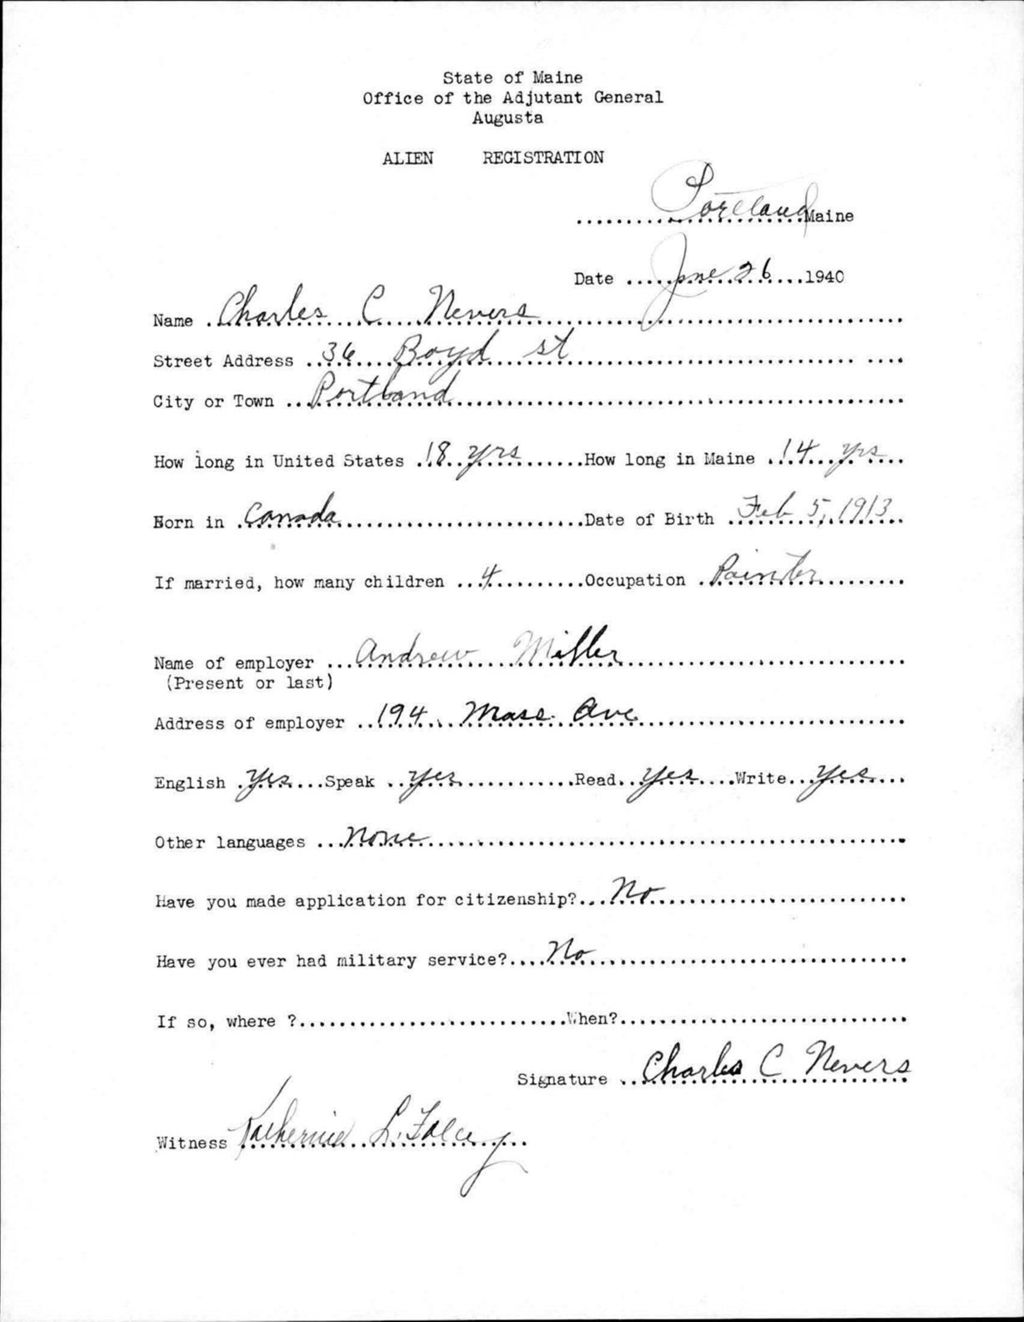 State of Maine
Office of the Adjutant General
Augusta
ALIEN REGISTRATION
Portland Maine
Date June 26 1940
Name Charles C. Nevers
Street Address 36 Boyd st
City or Town Portland
How long in United States 18 yrs How long in Maine 14 yrs
Born in Canada Date of Birth Feb 5, 1913
If married, how many children 4 Occupation Painter
Name of employer Andrew Miller
(Present or last)
Address of employer 194 Mass. Ave
English Yes Speak Yes Read Yes Write Yes
Other languages None
Have you made application for citizenship? No
Have you ever had military service? No
If so, where ? When?
Signature Charles C Nevers
Witness Katherine L. Foley